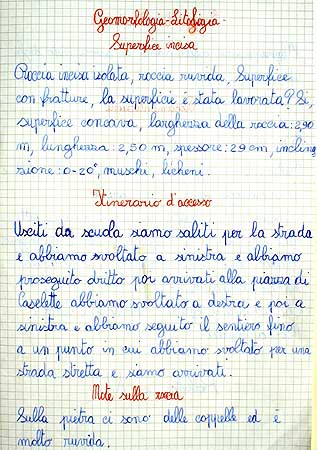 Geomorfologia-Litologia
Superfice incisa
Roccia incisa isolata, roccia ruvida, Superfice
con fratture, la superficie è stata lavorata? Si,
superfice concava, larghezza della roccia: 2,90
m, lunghezza: 2,50 m, spessore: 29 cm, inclina
zione: 0-20°, muschi, licheni.
Itinerario d'accesso
Usciti da scuola siamo saliti per la strada
e abbiamo svoltato a sinistra e abbiamo
proseguito dritto poi arrivati alla piazza di
Caselette abbiamo svoltato a destra e poi a
sinistra e abbiamo seguito il sentiero fino
a un punto in cui abbiamo svoltato per una
strada stretta e siamo arrivati.
Note sulla roccia
Sulla pietra ci sono delle coppelle ed è
molto ruvida.